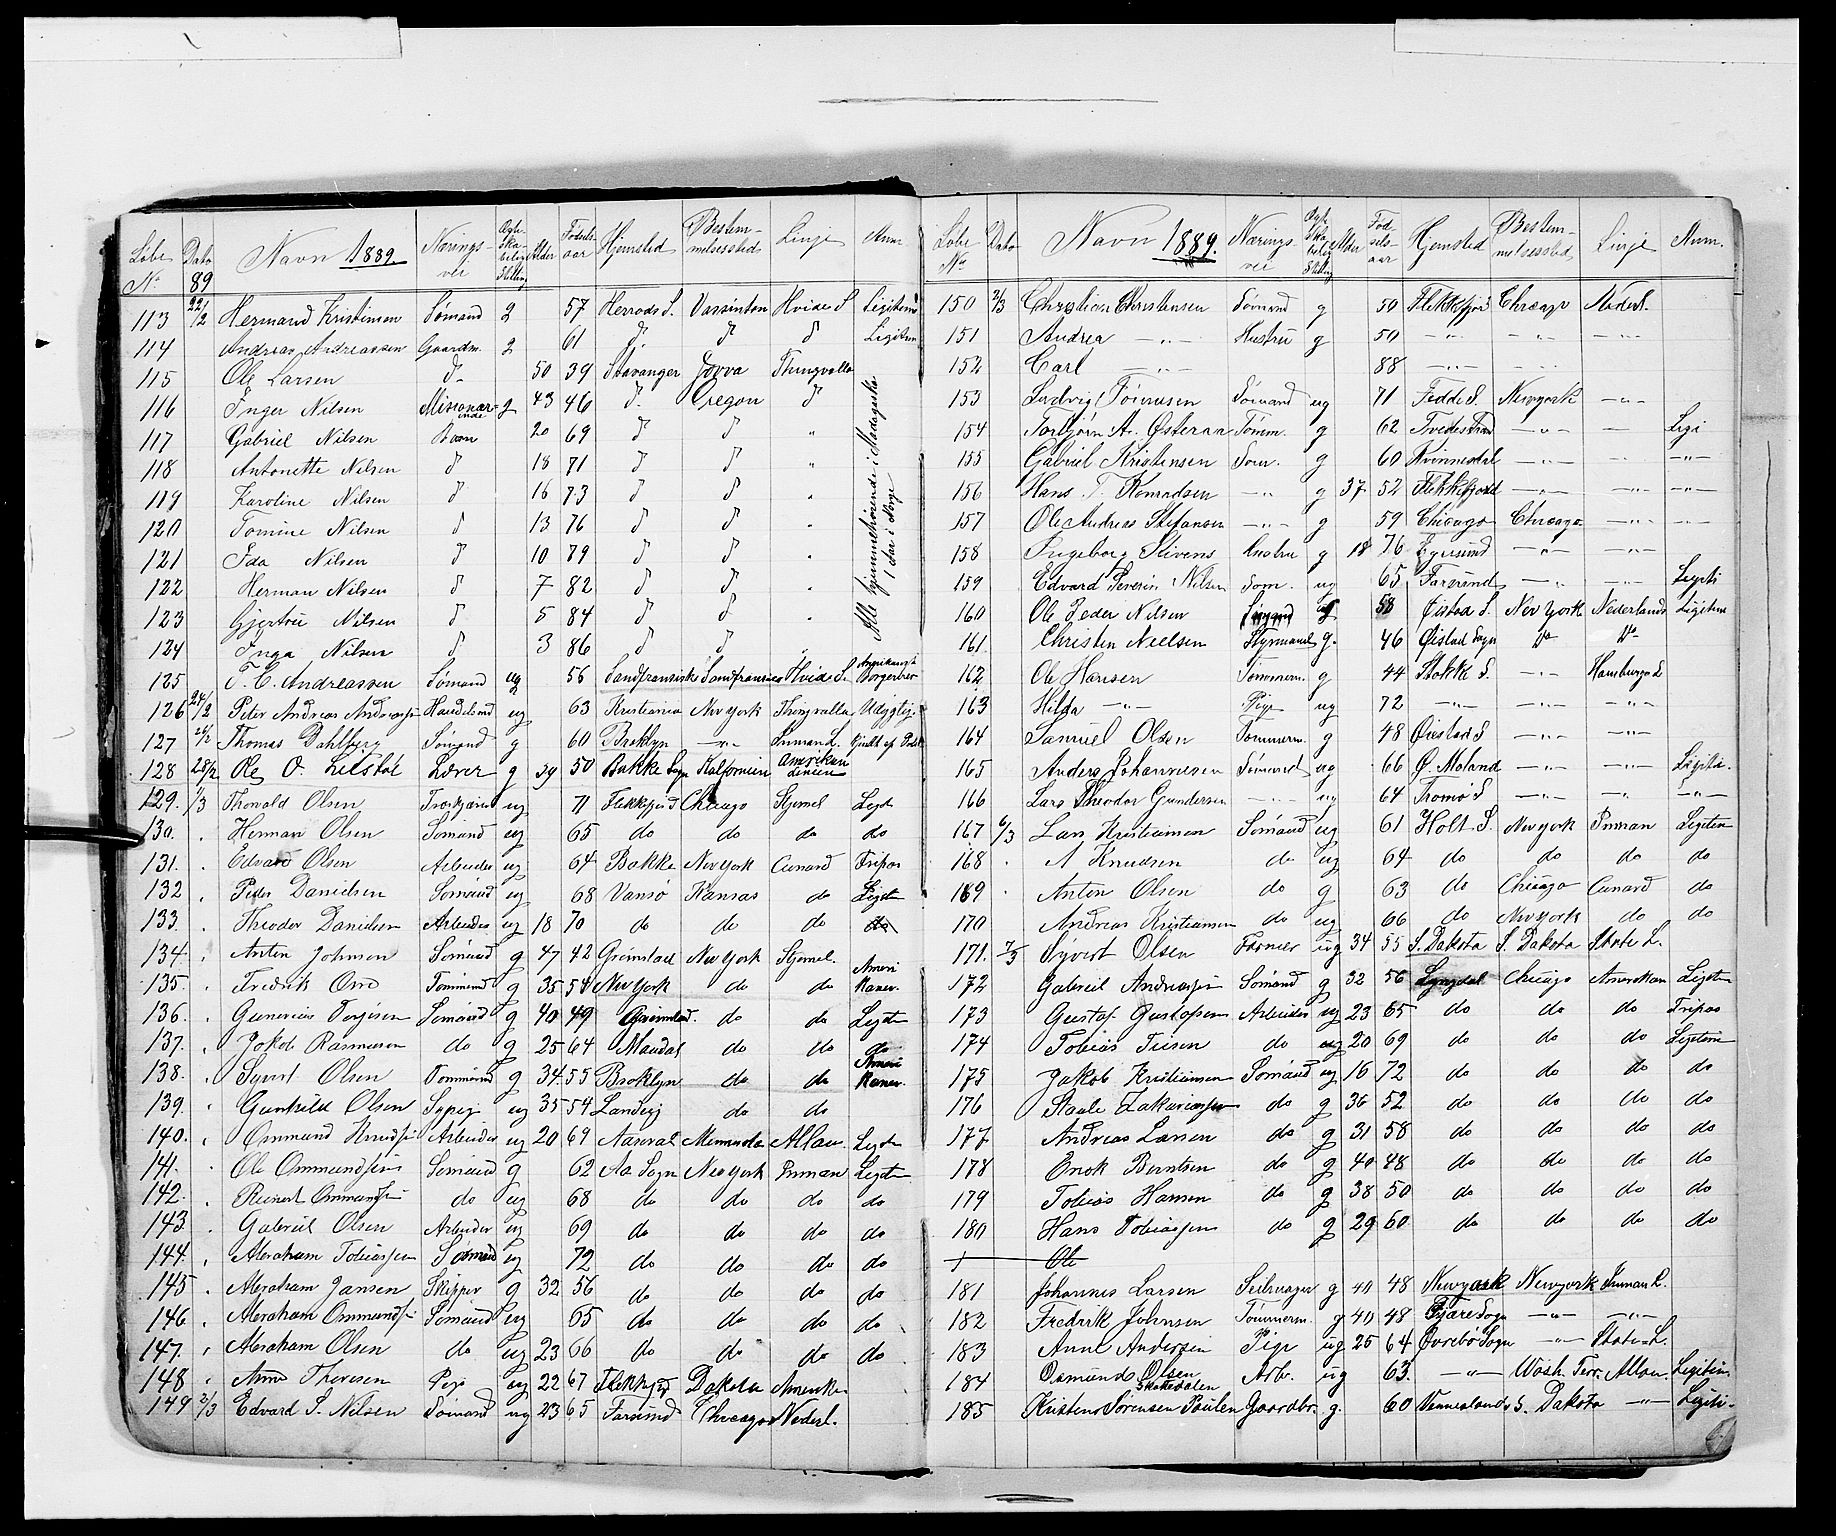 Løbe No. Dato 89 Navn 1889. Nærings- vei Ægte- ska- belig Stilling Alder Fødsels- aar Hjemsted Bestem- melsessted Linje Anm.
113 22/2 Hermand Kristensen Sømand g 57 Herrads S. Vassinton Hvide S Legitem
114 Andreas Andreassen Gaardm. g 61 d. d d Legitem
115 Ole Larsen d. 50 39 Stavanger Jovva Thingvalla
116 Inger Nilsen Missionær- inde g 43 46 d. Oregon d
117 Gabriel Nilsen Barn 20 69 d d "
118 Antonette Nilsen d 18 71 d d "
119 Karoline Nilsen d 16 73 d d "
120 Tomine Nilsen d 13 76 d d "
121 Ida Nilsen d 10 79 d d "
122 Herman Nilsen d 7 82 d d "
123 Gjertru Nilsen d 5 84 d d "
124 Inga Nilsen d 3 86 d d "
Alle hjemmehørende i Madagaskar 1 Aar i Norge
125 T. C. Andreassen Sømand ug 56 Sandfransisko Sandfransisco Hvide S. Amrikansk Borgerbrev
126 24/2 Peter Andreas Andreassen Handelsmd ug 63 Kristiania New York Thingvalla
127 26/2 Thomas Dahlberg Sømand g 60 Broklyn —"— Inman L.
128 28/2 Ole O. Lilstøl Lærer g 39 50 Bakke Sogn Kalfornien Amerikan Linien
129. 1/3 Thorvald Olsen ug 71 Flekkefjord Chicago Stjernel Legtn
130. . Herman Olsen Sømand ug 65 do do do do
131. . Edvard Olsen Arbeider ug 64 Bakke New York Cunard Fripas
132 . Peder Danielsen Sømand ug 68 Vansø Kansas do Legten
133. . Theodor Danielsen Arbeider ug 18 70 do do do do
134. . Anton Johnsen Sømand g 47 42 Grimstad New York Stjernel
135. . Fredrik Tømmend g 35 54 New York do do Ameri kaner.
136. . Gunerius Torgisen Sømand g 40 49 Grimstad. do do Legten
137. . Jakob Rasmusen do g 25 64 Mandal do do do
138. . Syvert Olsen Tommend g 34 55 Broklyn do do Ameri kaner.
139. . Gunhild Olsen Sypig ug 35 54 Landvig do do
140. . Ommund Knudsen Arbeider ug 20 69 Aaseral Mennesota Allan Legtn
141. . Ole Ommundsen Sømand g 62 Aa Sogn New York Inman Legten
142. . Reinert Ommundsen do ug 68 do do do do
143 . Gabriel Olsen Arbeider ug 69 do do do do
144. . Abraham Tobiassen Sømand ug 72 do do do do
145 . Abraham Jansen Skipper g 32 56 do do do do
146. . Abraham Ommundsen Sømand ug 65 do do do do
147. . Abraham Olsen do ug 23 66 do do do do
148 . Anne Theresen Pige ug 22 67 Flekkefjd Dakota Amerika
149 2/3 Edvard S. Nilsen Sømand ug 23 65 Farsund Chicago Nederl.
Løbe No Dato Navn 1889. Nærings- vei Ægte- Ska- belig Stilling Alder Fød- sels- aar Hjemsted Bestem- melsessted Linje Anm.
150 2/3 Christian Christensen Sømand g 50 Flekkefjor Chicago Nederl.
151 Andrea —"— Hustru g 50 —"— —"— —"—
152 Carl —"— 88 —"— —"—
153 Ludvig Tønnesen Sømand ug 71 Fedde S. Newyork —"—
154 Torbjørn A. Østeraa Tømm. g 62 Tvedestrand —"— — Legi
155 Gabriel Kristensen Søm. g 60 Kvinnesdal —"— —"— —"—
156 Hans T. Konradsen —"— g 37 52 Flekkefjord —"— —"— —"—
157 Ole Andreas Stefansen —"— g 59 Chicago Chicago —"— —"—
158 Ingeborg Stivens Hustru g 18 76 Egersund —"— —"—
159 Edvard Severin Nilsen Søm. ug 65 Farsund —"— —"— Legiti
160 Ole Peder Nilsen Sømand g 58 Øistad S. New York Nederlands Legitem
161. Christen Nielsen Styrmand g. 46 Øistad Sogn Do Do
162 Ole Hansen Tømmerm. g 44 Stokke S. —"— Hamburga L
163 Hilda —"— Pige ug 72 —"— —"— —"— —"—
164 Samuel Olsen Tømmerm. g 48 Øiestad S —"— —"—
165 Anders Johannesen Sømand ug 66 Ø. Moland —"— —"— Legiti.
166 Lars Theodor Gundersen —"— ug 64 Tromø S —"— " —"—
167 6/3 Lars Kristiansen Sømand ug 61 Holt. S. New York Inman Legiten
168 . A Knudsen do ug 64 do do do do
169 . Anton Olsen do g 63 do Chicago Cunard do
170 Andreas Kristiansen do ug 66 do New York do do
171. 7/3 Syvert Olsen Farmer ug 34 55 S. Dakota S. Dakota State L.
172 Gabriel Andreassen Sømand g 32 56 Lyngdal Chicago Amerekan Legten
173 Gustaf Gustafsen Arbeider ug 23 65 do do do Fripas
174 Tobias do ug 20 69 do do do Legitem
175 Jakob Kristiansen Sømand ug 16 72 do do do do
176 Staale Zakariassen do g 36 52 do do do do
177 Andreas Larsen do g 31 58 do do do do
178 Enok Berntsen do g 40 48 do do do do
179 Tobias Hansen do g 38 50 do do do do
180 Hans Tobiassen do g 29 60 do do do do
1 Ole
181 Johannes Larsen Seilmager g 40 48 Newyork Newyork Inman L.
182 Fredrik Johnsen Tømmerm. g 40 48 Fjære Sogn —"— —"—
183 Anne Andersen Pige ug 25 64 Øvrebø Sogn —"— State L.
184 Osmund Olsen Skakedalen Arb. ug 63. —"— Wash. Terr. Allan Legitim.
185 Kristens Sørensen Poulen Gaardbr. g. 60 Vennesland S. Dakota —"— Legiti.